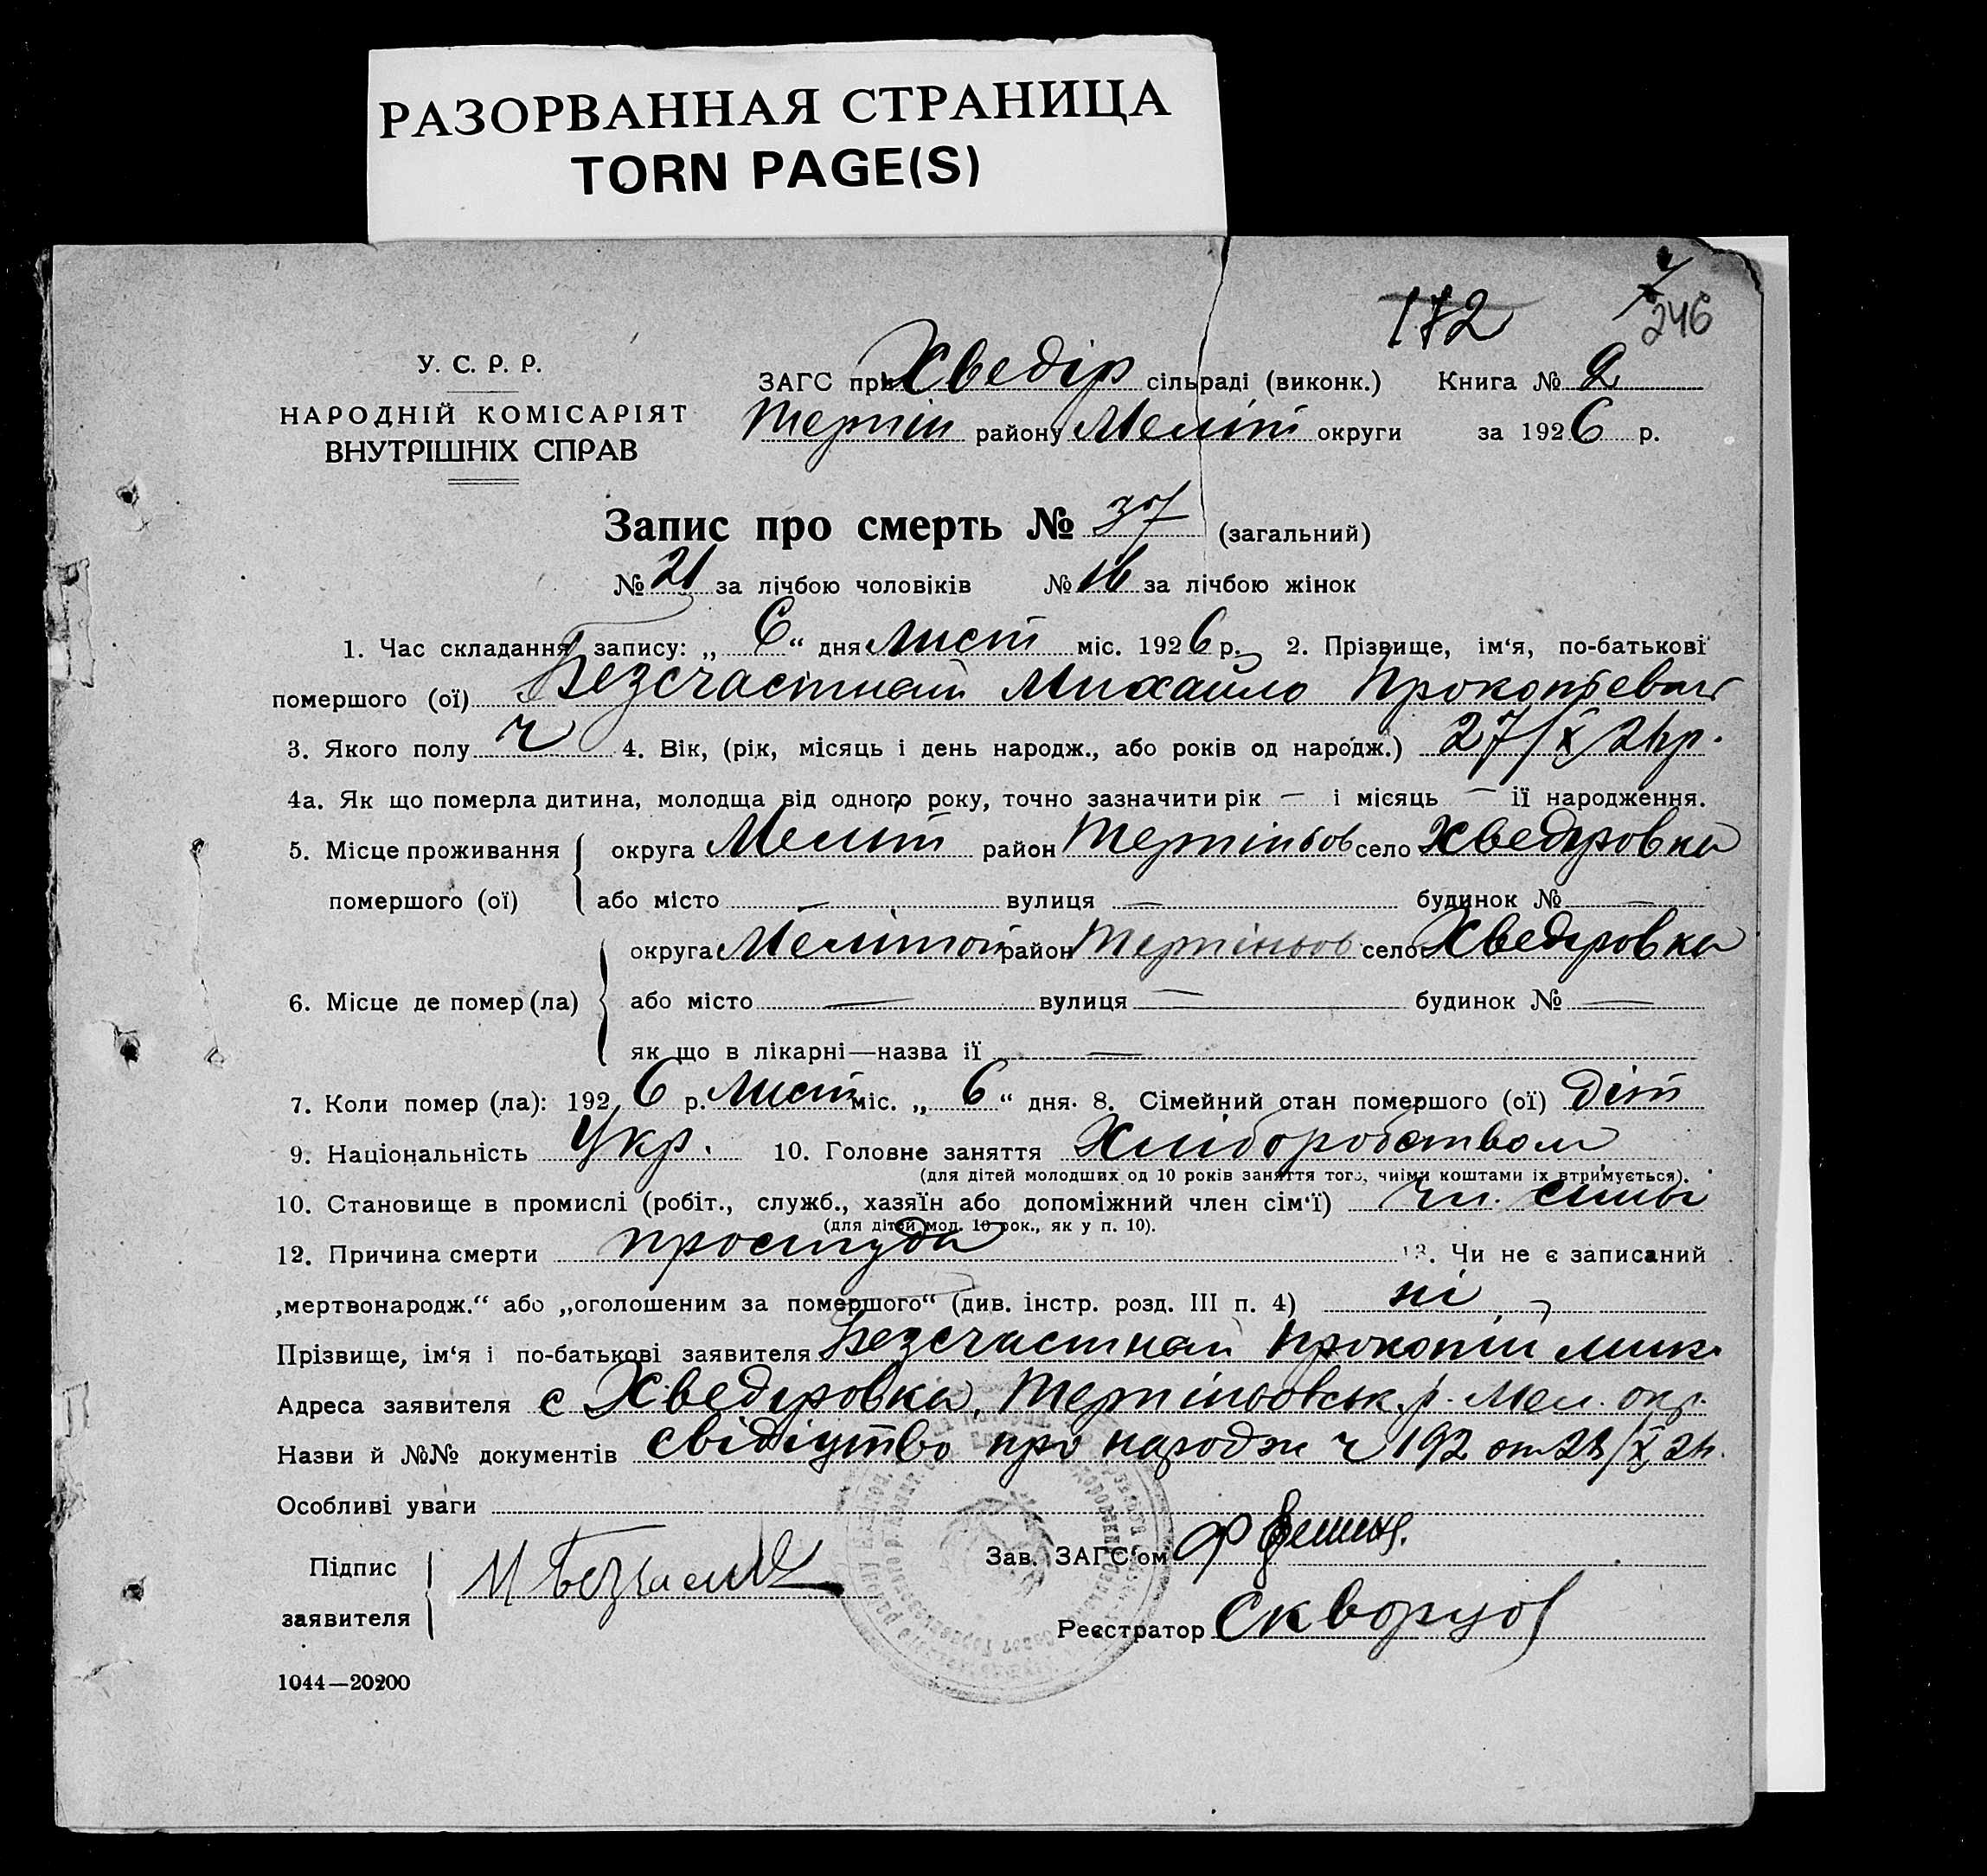 РАЗОРВАННАЯ СТРАНИЦА
TORN PAGE(S)
172
246
У. С. Р. Р.
НАРОДНІЙ КОМІСАРІЯТ
ВНУТРІШНІХ СПРАВ
ЗАГС при Хведір сільраді (виконк.) Книга № 2
Терпін району Меліт округи за 1926 р.
Запис про смерть № 37 (загальний)
№ 21 за лічбою чоловіків № 16 за лічбою жінок
1. Час складання запису: „ 6 “ дня Лист міс. 1926 р. 2. Прізвище, ім‘я, по-батькові
помершого (ої) Безсчастный Михайло Прокопьевич
3. Якого полу ч 4. Вік, (рік, місяць і день народж., або років од народж.) 27/X 24 р.
4а. Як що померла дитина, молодща від одного року, точно зазначити рік — і місяць — її народження.
5. Місце проживання округа Меліт район Терпіньов село Хведіровка
помершого (ої) або місто — вулиця — будинок № —
округа Мелітоп район Терпіньов село Хведіровка
6. Місце де помер (ла) або місто — вулиця — будинок № —
як що в лікарні—назва її —
7. Коли помер (ла): 1926 р. Лист міс. „ 6 “ дня. 8. Сімейний стан помершого (ої) діт
9. Національність Укр. 10. Головне заняття Хліборобством
(для дітей молодших од 10 років заняття того, чиїми коштами їх втримується).
10. Становище в промислі (робіт., служб., хазяїн або допоміжний член сім‘ї) чл. симьи
(для дітей мол. 10 рок., як у п. 10).
12. Причина смерти простуда 13. Чи не є записаний
„мертвонародж.“ або „оголошеним за помершого“ (див. інстр. розд. III п. 4) ні
Прізвище, ім‘я і по-батькові заявителя Безсчастный Прокопій Мих.
Адреса заявителя с Хведіровка, Терпіньовськ. р. Мел. окр.
Назви й №№ документів свідіцтво про народж ч 192 от 28/X 24.
Особливі уваги
Підпис
заявителя
Зав. ЗАГС‘ом
Реєстратор Скворцов
1044—20200